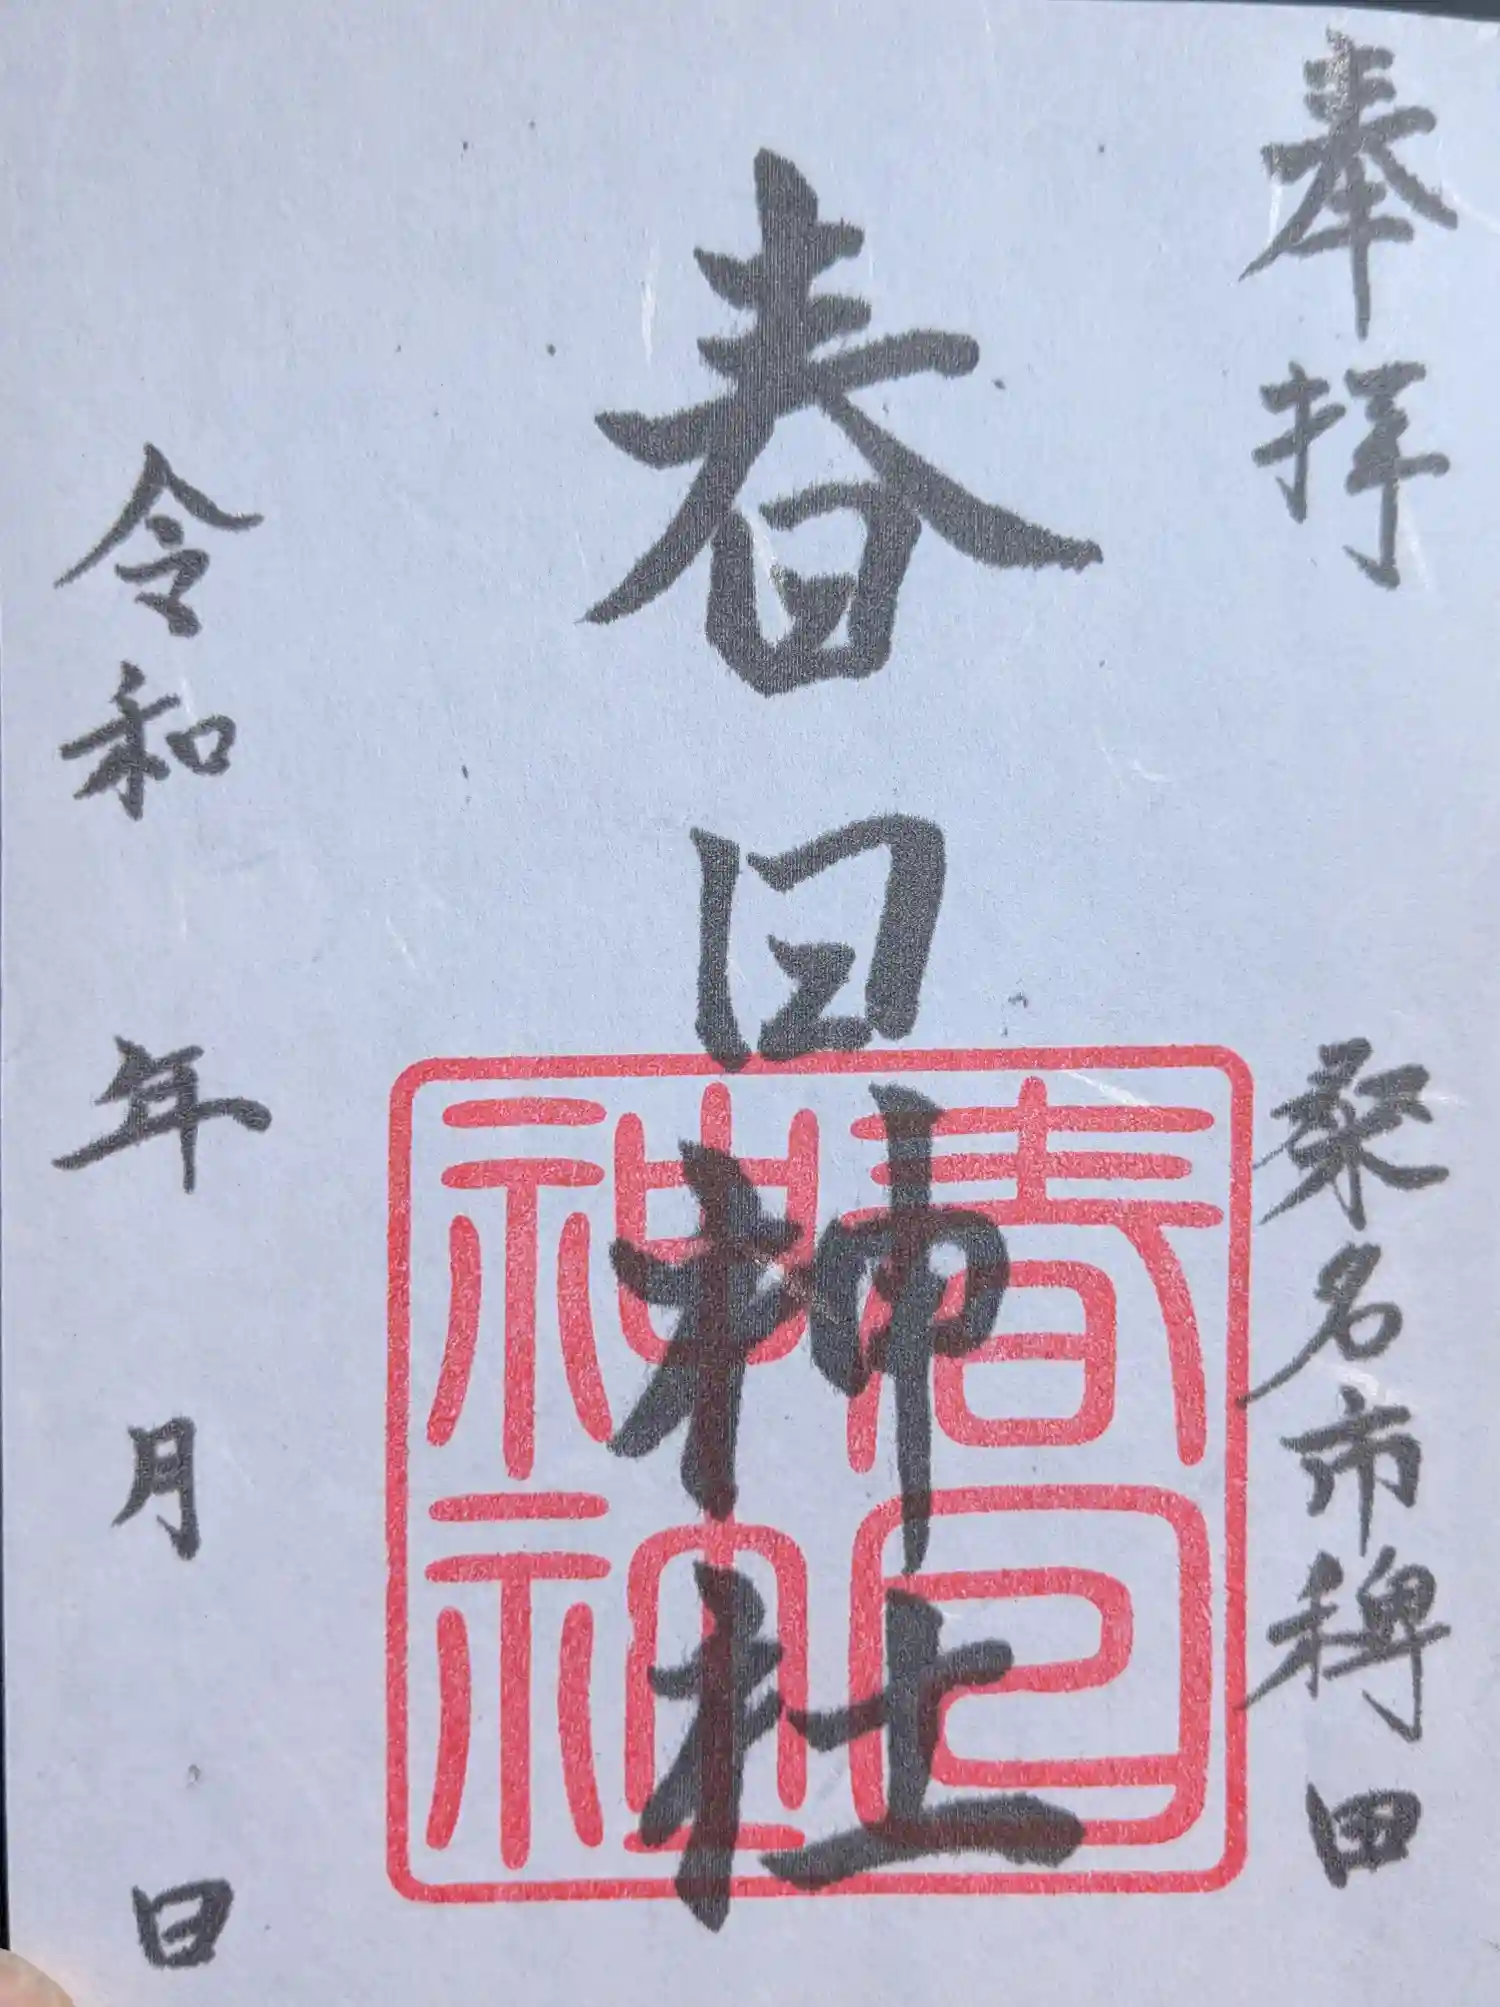 奉拝
桑名市稗田
春日神社
春日神社
令和 年 月 日